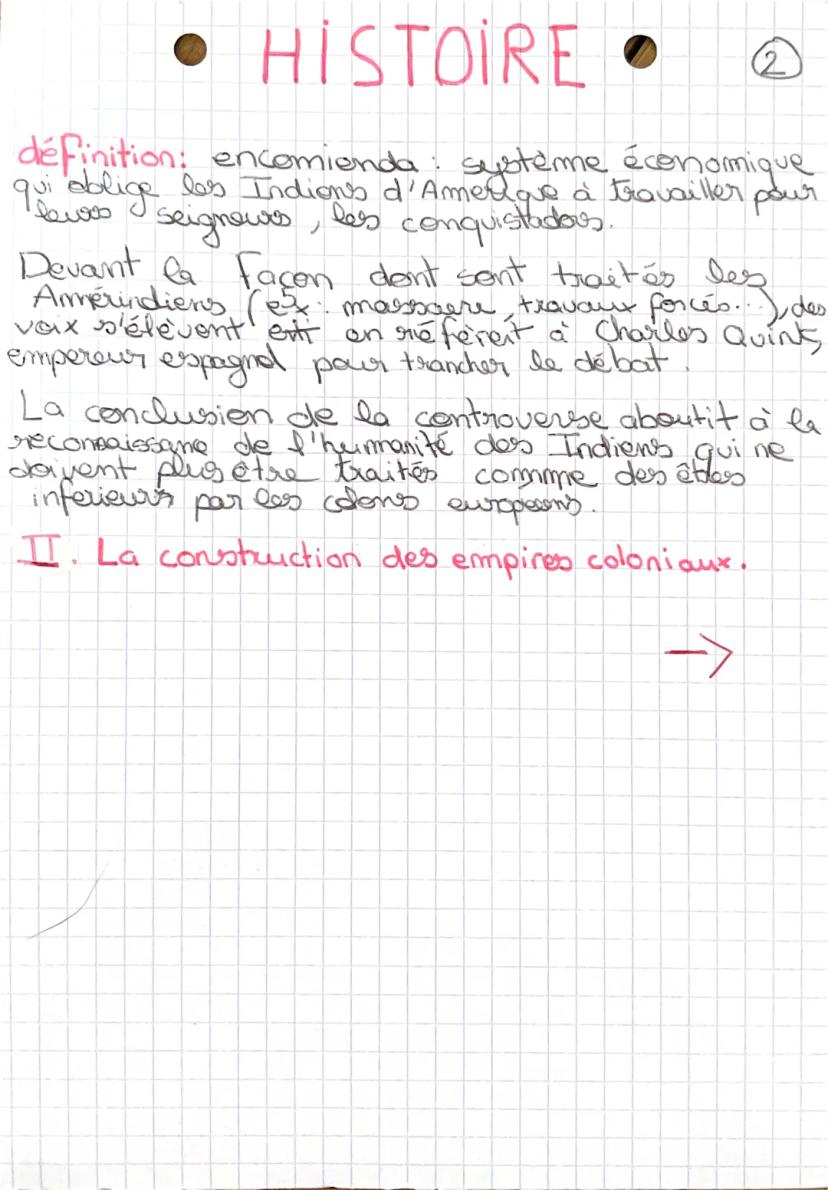 HISTOIRE
2
définition: encomienda : système économique
qui oblige les Indiens d'Amérique à travailler pour
leurs seigneurs, les conquistadors.
Devant la façon dont sont traités les
Amérindiens (ex : massacre, travaux forcés...), des
voix s'élèvent et en réfèrent à Charles Quint,
empereur espagnol pour trancher le débat.
La conclusion de la controverse aboutit à la
reconnaissance de l'humanité des Indiens qui ne
doivent plus être traités comme des êtres
inférieurs par les colons européens.
II. La construction des empires coloniaux.
→